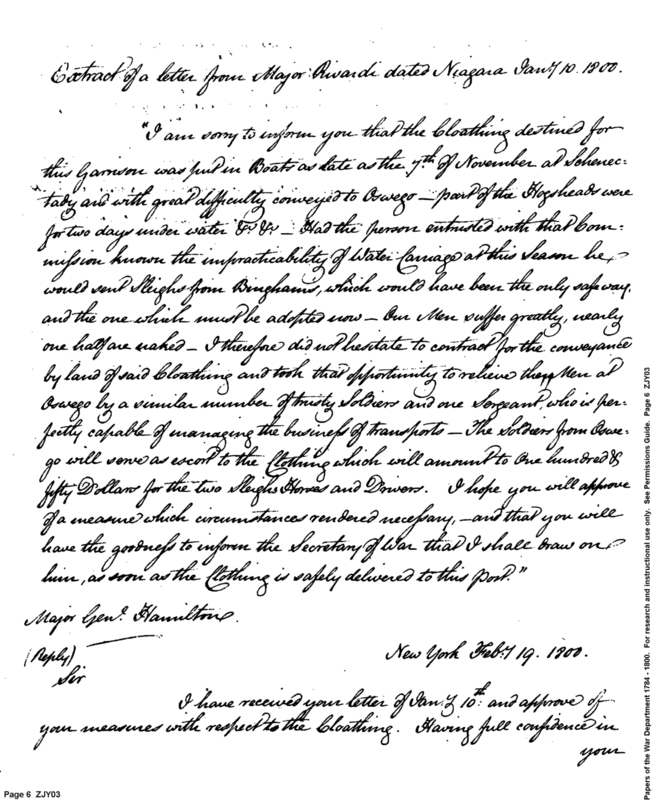 Extract of a letter from Major Rivardi dated Niagara Jany 10. 1800.
"I am sorry to inform you that the Cloathing destined for
this Garrison was put in Boats as late as the 7th of November at Schenec-
tady and with great difficulty conveyed to Oswego — part of the Hogsheads were
for two days under water &c &c — Had the person entrusted with that Com-
mission known the impracticability of Water Carriage at this Season he
would sent Sleighs from Binghams, which would have been the only safe way,
and the one which must be adopted now — Our Men suffer greatly, nearly
one half are naked — I therefore did not hesitate to contract for the conveyance
by land of said Cloathing and took that opportunity to relieve the Men at
Oswego by a similar number of trusty Soldiers and one Sergeant, who is per-
fectly capable of managing the business of transports — The Soldiers from Oswe-
go will serve as escort to the Clothing which will amount to One hundred &
fifty Dollars for the two Sleighs Horses and Drivers. I hope you will approve
of a measure which circumstances rendered necessary, — and that you will
have the goodness to inform the Secretary of War that I shall draw on
him, as soon as the Clothing is safely delivered to this Post."
Major Genl. Hamilton.
(Reply)
New York Feby 19. 1800.
Sir
I have received your letter of Jany 10th: and approve of
your measures with respect to the Cloathing. Having full confidence in
your
Page 6 ZJY03
Papers of the War Department 1784 - 1800. For research and instructional use only. See Permissions Guide. Page 6 ZJY03